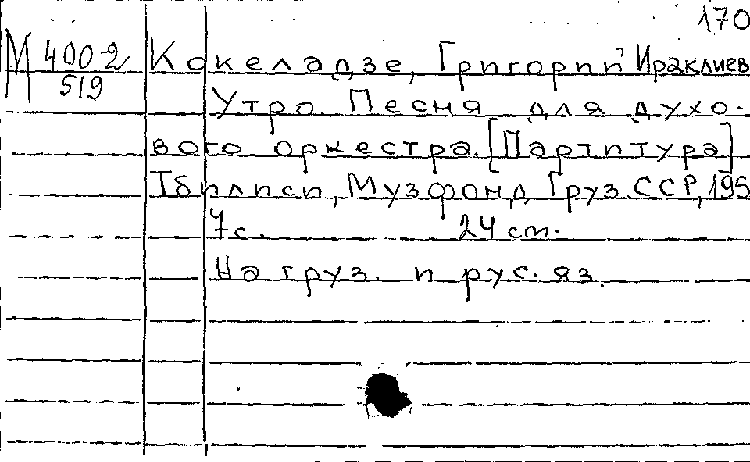 170
М 400-2
519
Кокеладзе, Григорий Ираклиев
Утро. Песня для духо-
вого оркестра. [Партитура]
Тбилиси, Музфонд Груз. ССР, 195
7с. 24 cm.
На груз. и рус. яз.